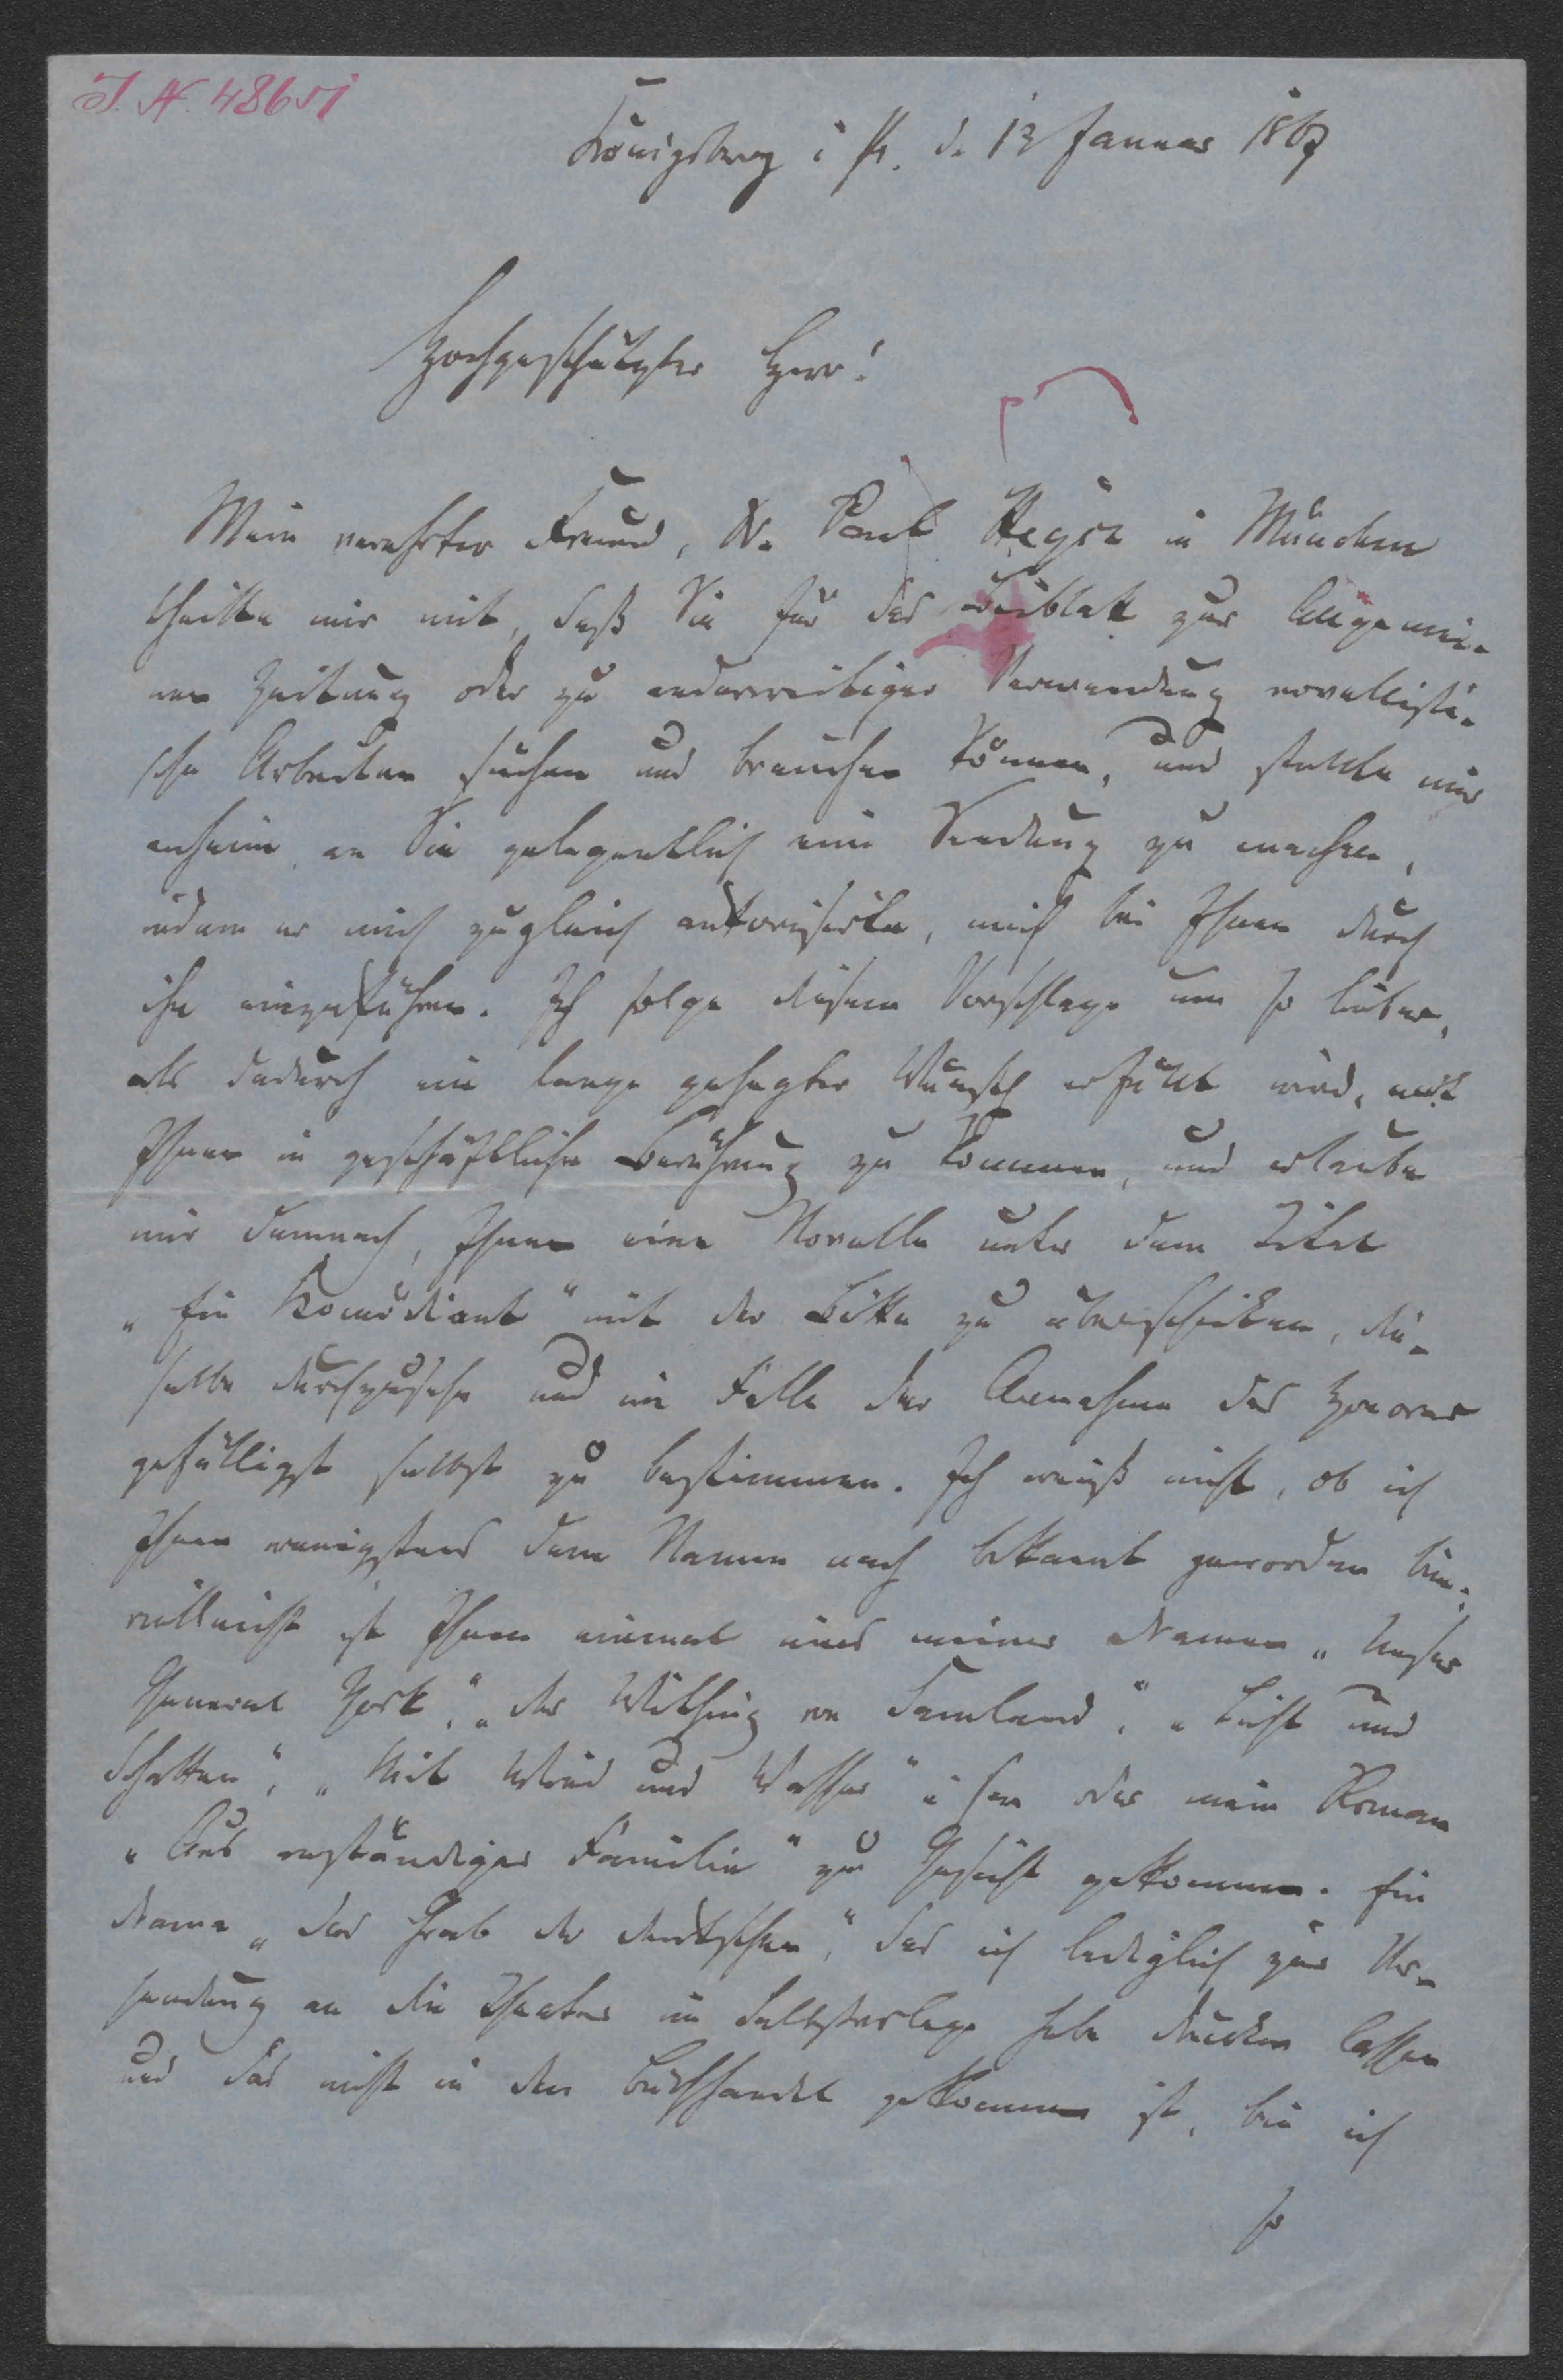 J. N. 48651
Königsberg i Pr. d. 12 Januar 1867
Hochgeschätzter Herr!
Mein verehrter Freund, Dr. Paul Heyse in München
theilte mir mit, daß Sie für das Beiblatt zur Allgemei-
nen Zeitung oder zu anderweitiger Verwendung novellisti-
sche Arbeiten suchen und brauchen können, und stellte mir
anheim an Sie gelegentlich eine Sendung zu machen,
indem er mich zugleich autorisirte, mich bei Ihnen durch
ihn einzuführen. Ich folge diesem Vorschlage um so lieber,
als dadurch ein lange gehegter Wunsch erfüllt wird, mit
Ihnen in geschäftliche Berührung zu kommen, und erlaube
mir demnach, Ihnen eine Novelle unter dem Titel
„Ein Komödiant“ mit der Bitte zu überschicken, die-
selbe durchzusehn und im Falle der Annahme das Honorar
gefälligst selbst zu bestimmen. Ich weiß nicht, ob ich
Ihnen wenigstens dem Namen nach bekannt geworden bin;
vielleicht ist Ihnen einmal eines meiner Dramen „Unser
General York“, „Der Withing von Samland“, „Licht und
Schatten“, „Mit Wind und Wasser“ oder mein Roman
„Aus anständiger Familie“ zu Gesicht gekommen. Ein
Drama „Das Grab der Deutschen“, das ich lediglich zur Ver-
sendung an die Theater im Selbstverlage habe drucken lassen
und das nicht in den Buchhandel gekommen ist, bin ich
so